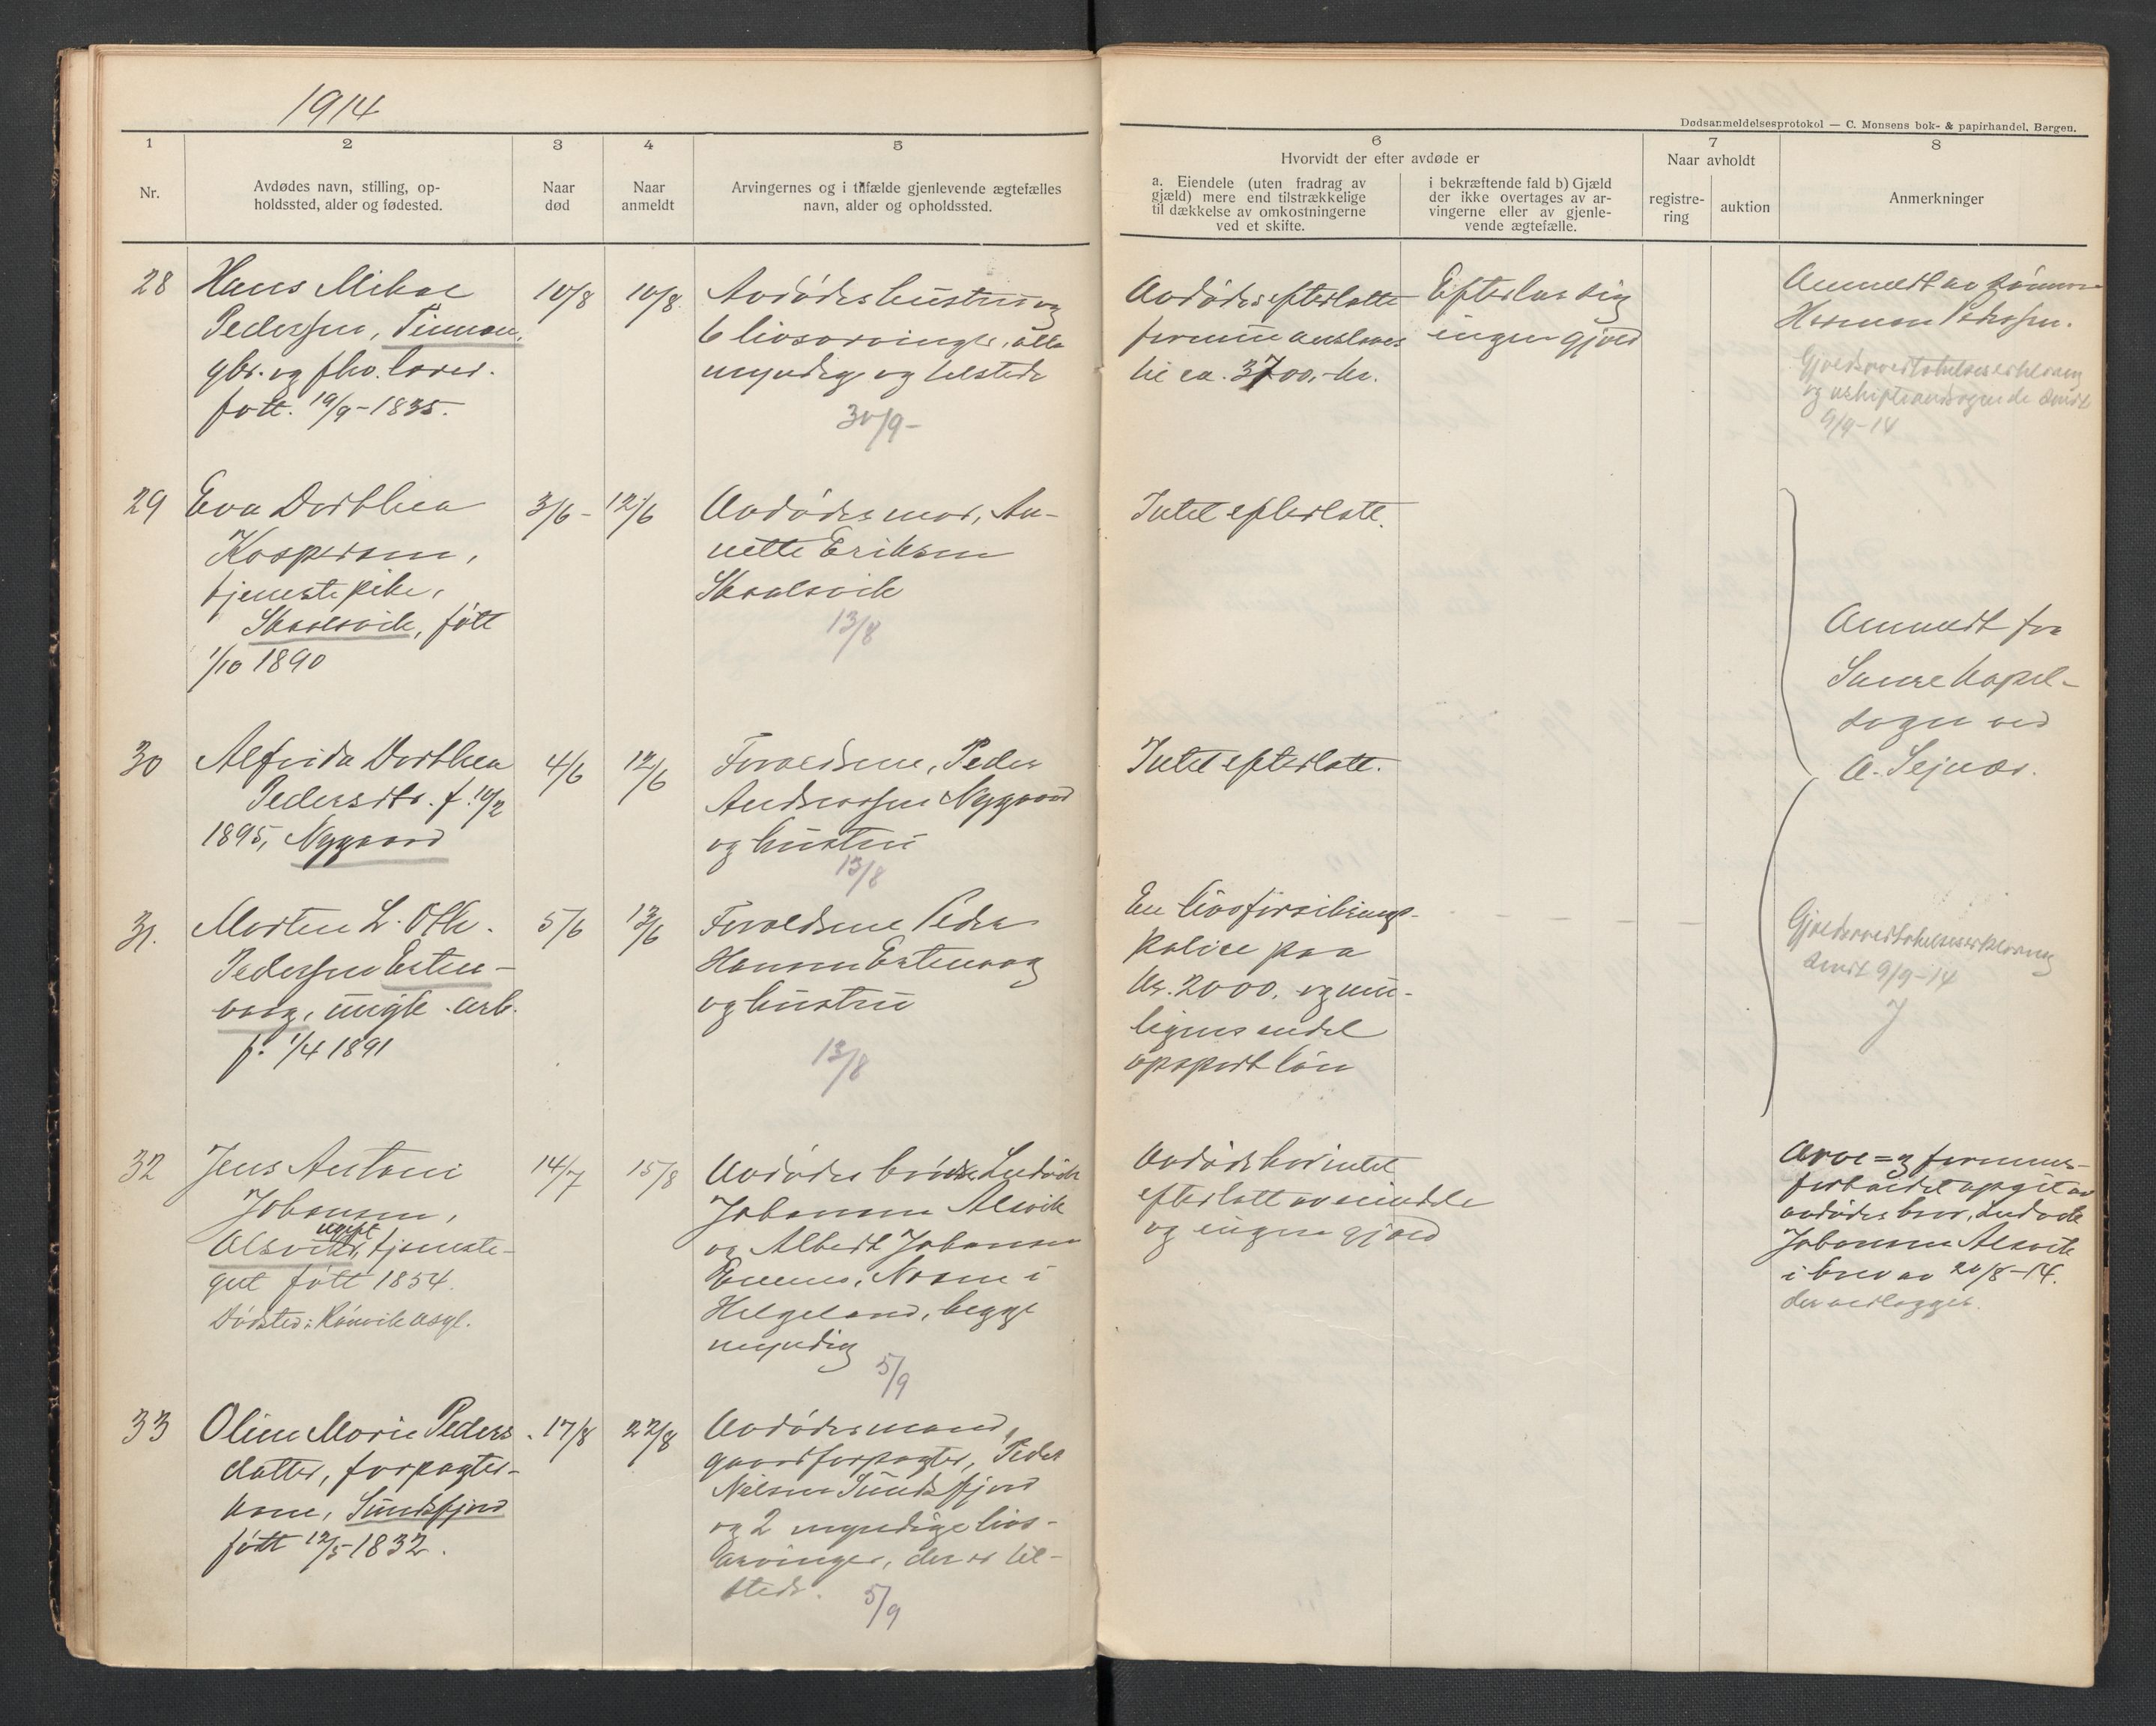 1914
Dødsanmeldelsesprotokol — C. Monsens bok- & papirhandel, Bergen.
1
2
3
4
5
6
7
8
Nr.
Avdødes navn, stilling, op-
holdssted, alder og fødested.
Naar
død
Naar
anmeldt
Arvingernes og i tilfælde gjenlevende ægtefælles
navn, alder og opholdssted.
Hvorvidt der efter avdøde er
a. Eiendele (uten fradrag av
gjæld) mere end tilstrækkelige
til dækkelse av omkostningerne
ved et skifte.
i bekræftende fald b) Gjæld
der ikke overtages av ar-
vingerne eller av gjenle-
vende ægtefælle.
Naar avholdt
registre-
ring
auktion
Anmerkninger
28
Hans Mikal
Pedersen,
gbr. og fhv.
født. 19/9-1835.
10/8
10/8
Avdødes hustru og
6 livsarvinger, alle
myndige og tilstede
30/9-
Avdødes efterlatte
formue anslaaes
til ca. 3700,- kr.
Efterlar sig
ingen gjæld
Anmeldt av sønnen
Herman Pedersen.
Gjældsovertakelseserklæring
og uskifteandragende sendt
9/9-14
29
Eva Dorthea
Kaspersen,
tjenestepike,
Skaalsvik, født
1/10 1890
3/6-
12/6
Avdødes mor, An-
nette Eriksen
Skaalsvik
13/8
Intet efterlatt.
Anmeldt fra
kapel-
sogn ved
A. Sejnæs.
30
Alfrida Dorthea
Pedersdtr. f. 10/2
1895, Nygaard
4/6
12/6
Forældrene, Peder
Andreassen Nygaard
og hustru
13/8
Intet efterlatt.
31.
Morten L. Oth.
Pedersen Esten-
vaag, ungk. arb.
f. 1/4 1891
5/6
13/6
Forældrene Peder
Hansen Estenvaag
og hustru
13/8
En livsforsikrings-
police paa
kr. 2000, og mu-
ligens endel
opspart løn
Gjældsovertakelseserklæring
sendt 9/9-14
32
Jens Antoni
Johansen,
ugift
Alsvik, tjeneste-
gut født 1854.
Dødsted: Rønvik asyl.
14/7
15/8
Avdødes brødre Ludvik
Johansen Alsvik
og Albert Johansen
Nesne i
Helgeland, begge
myndig
5/9
Avdøde har intet
efterlatt av eiendele
og ingen gjæld
Arve= og formues-
forholdet opgit av
avdødes bror, Ludvik
Johansen Alsvik
i brev av 20/8-14.
der vedlægges.
33
Oline Marie Peders
datter, forpagter-
kone, Sundsfjord
født 12/5-1832.
17/8
22/8
Avdødes mand,
gaardforpagter, Peder
Nilsen Sundsfjord
og 2 myndige livs-
arvinger, der er til-
stede.
5/9